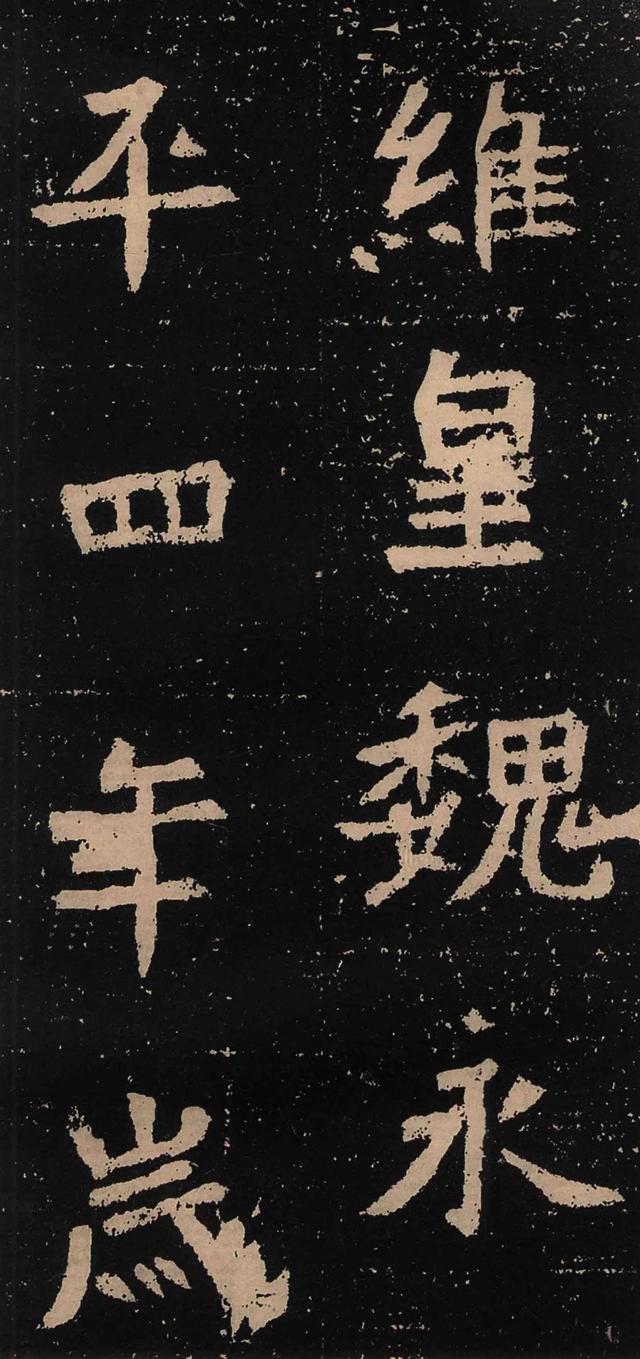 維皇魏永
平四年歲